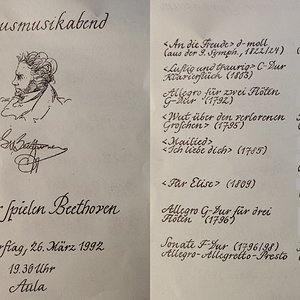 usmusikabend
spielen Beethoven
26. März 1992
19.30 Uhr
Aula
<An die Freude> d-moll
(aus der 9. Symph., 1822/24)
<Lustig und traurig> C-Dur
Klavierstück (1803)
Allegro für zwei Flöten
G-Dur (1792)
<Wut über den verlorenen
Groschen> (1795)
<Mailied>
<Ich liebe dich> (1795)
<Für Elise> (1809)
Allegro G-Dur für drei
Flöten (1796)
Sonate F-Dur (1796/98)
Allegro-Allegretto-Presto